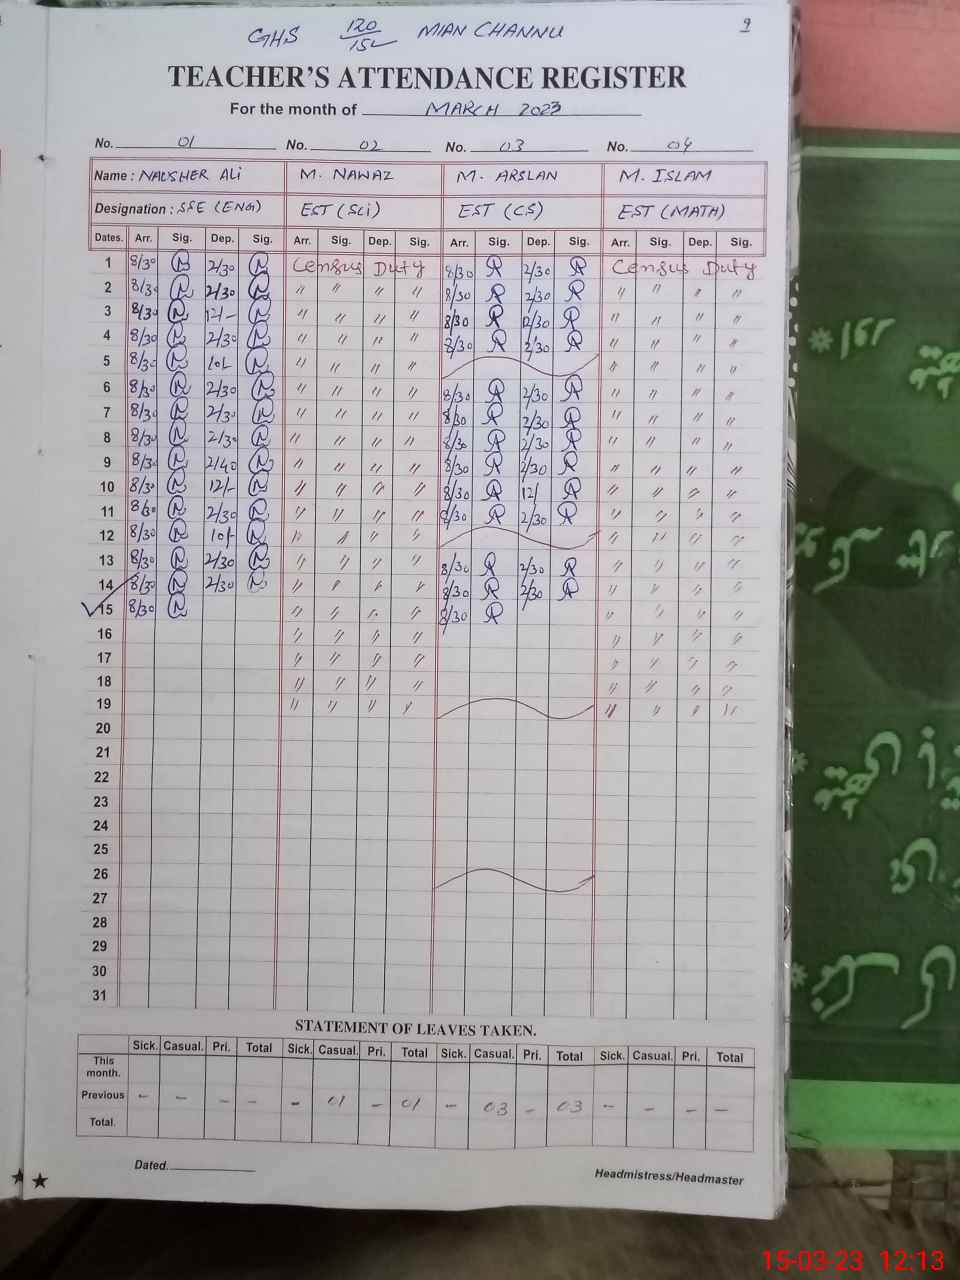 GHS 120/15L MIAN CHANNU 9
TEACHER'S ATTENDANCE REGISTER
For the month of MARCH 2023
No. 01 No. 02 No. 03 No. 04
Name : NAUSHER ALi M. NAWAZ M. ARSLAN M. ISLAM
Designation : SSE (ENG) EST (SCi) EST (CS) EST (MATH)
Dates. Arr. Sig. Dep. Sig. Arr. Sig. Dep. Sig. Arr. Sig. Dep. Sig. Arr. Sig. Dep. Sig.
1 8/30 2/30 Census Duty 8/30 2/30 Census Duty
2 8/30 2/30 " " " " 8/30 2/30 " " " "
3 8/30 12/- " " " " 8/30 12/30 " " " "
4 8/30 2/30 " " " " 8/30 2/30 " " " "
5 8/30 10/- " " " " " " " "
6 8/30 2/30 " " " " 8/30 2/30 " " " "
7 8/30 2/30 " " " " 8/30 2/30 " " " "
8 8/30 2/30 " " " " 8/30 2/30 " " " "
9 8/30 2/40 " " " " 8/30 2/30 " " " "
10 8/30 12/- " " " " 8/30 12/ " " " "
11 8/30 2/30 " " " " 8/30 2/30 " " " "
12 8/30 10/- " " " " " " " "
13 8/30 2/30 " " " " 8/30 2/30 " " " "
14 8/30 2/30 " " " " 8/30 2/30 " " " "
15 8/30 " " " " 8/30 " " " "
16 " " " " " " " "
17 " " " " " " " "
18 " " " " " " " "
19 " " " " " " " "
20
21
22
23
24
25
26
27
28
29
30
31
STATEMENT OF LEAVES TAKEN.
Sick. Casual. Pri. Total Sick. Casual. Pri. Total Sick. Casual. Pri. Total Sick. Casual. Pri. Total
This month.
Previous - - - - - 01 - 01 - 03 - 03 - - - -
Total.
Dated.
Headmistress/Headmaster
15-03-23 12:13